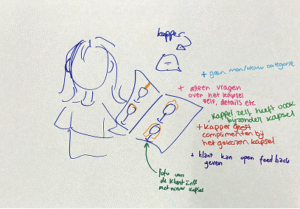 kapper
* geen man/vrouw categorie
+ alleen vragen
over het kapsel
zelf, details etc
. kapper zelf heeft ook
bijzonder kapsel
+ kapper geeft
complimenten bij
het gekozen kapsel
+ klant kan open feedback
geven
foto van
de klant zelf
met nieuw kapsel